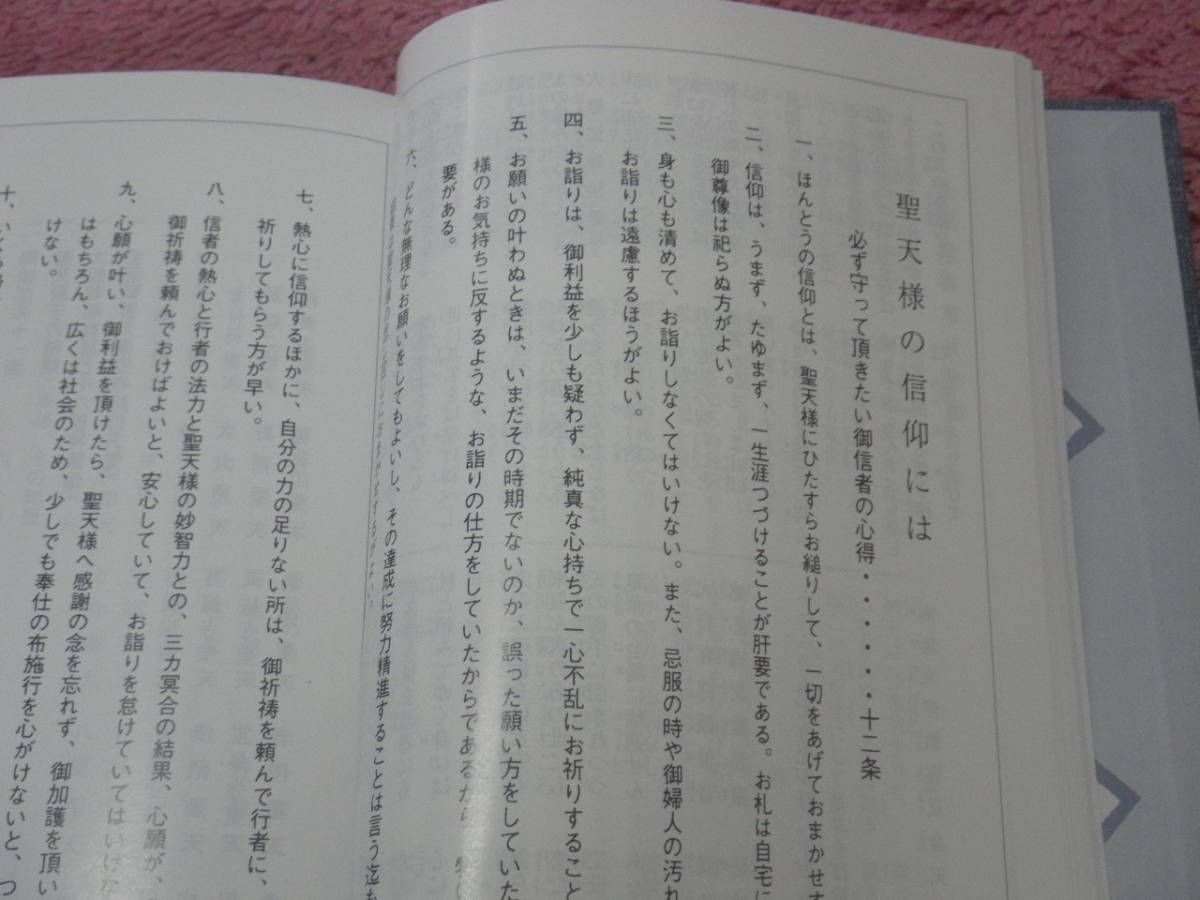 聖天様の信仰には
必ず守って頂きたい御信者の心得・・・・・・十二条
一、ほんとうの信仰とは、聖天様にひたすらお縋りして、一切をあげておまかせす
二、信仰は、うまず、たゆまず、一生涯つづけることが肝要である。お札は自宅に
御尊像は祀らぬ方がよい。
三、身も心も清めて、お詣りしなくてはいけない。また、忌服の時や御婦人の汚れ
お詣りは遠慮するほうがよい。
四、お詣りは、御利益を少しも疑わず、純真な心持ちで一心不乱にお祈りすること
五、お願いの叶わぬときは、いまだその時期でないのか、誤った願い方をしていた
様のお気持ちに反するような、お詣りの仕方をしていたからであるから、
要がある。
六、どんな無理なお願いをしてもよいし、その達成に努力精進することは言う迄も
七、熱心に信仰するほかに、自分の力の足りない所は、御祈祷を頼んで行者に、
祈りしてもらう方が早い。
八、信者の熱心と行者の法力と聖天様の妙智力との、三カ冥合の結果、心願が、
御祈祷を頼んでおけばよいと、安心していて、お詣りを怠けていてはいけな
九、心願が叶い、御利益を頂けたら、聖天様へ感謝の念を忘れず、御加護を頂い
はもちろん、広くは社会のため、少しでも奉仕の布施行を心がけないと、つ
けない。
十、